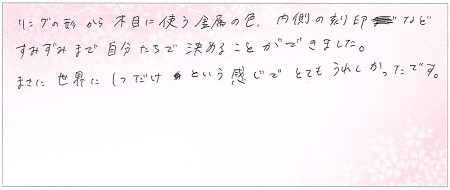 リングの形から木目に使う金属の色、内側の刻印など
すみずみまで自分たちで決めることができました。
まさに世界に1つだけという感じでとてもうれしかったです。